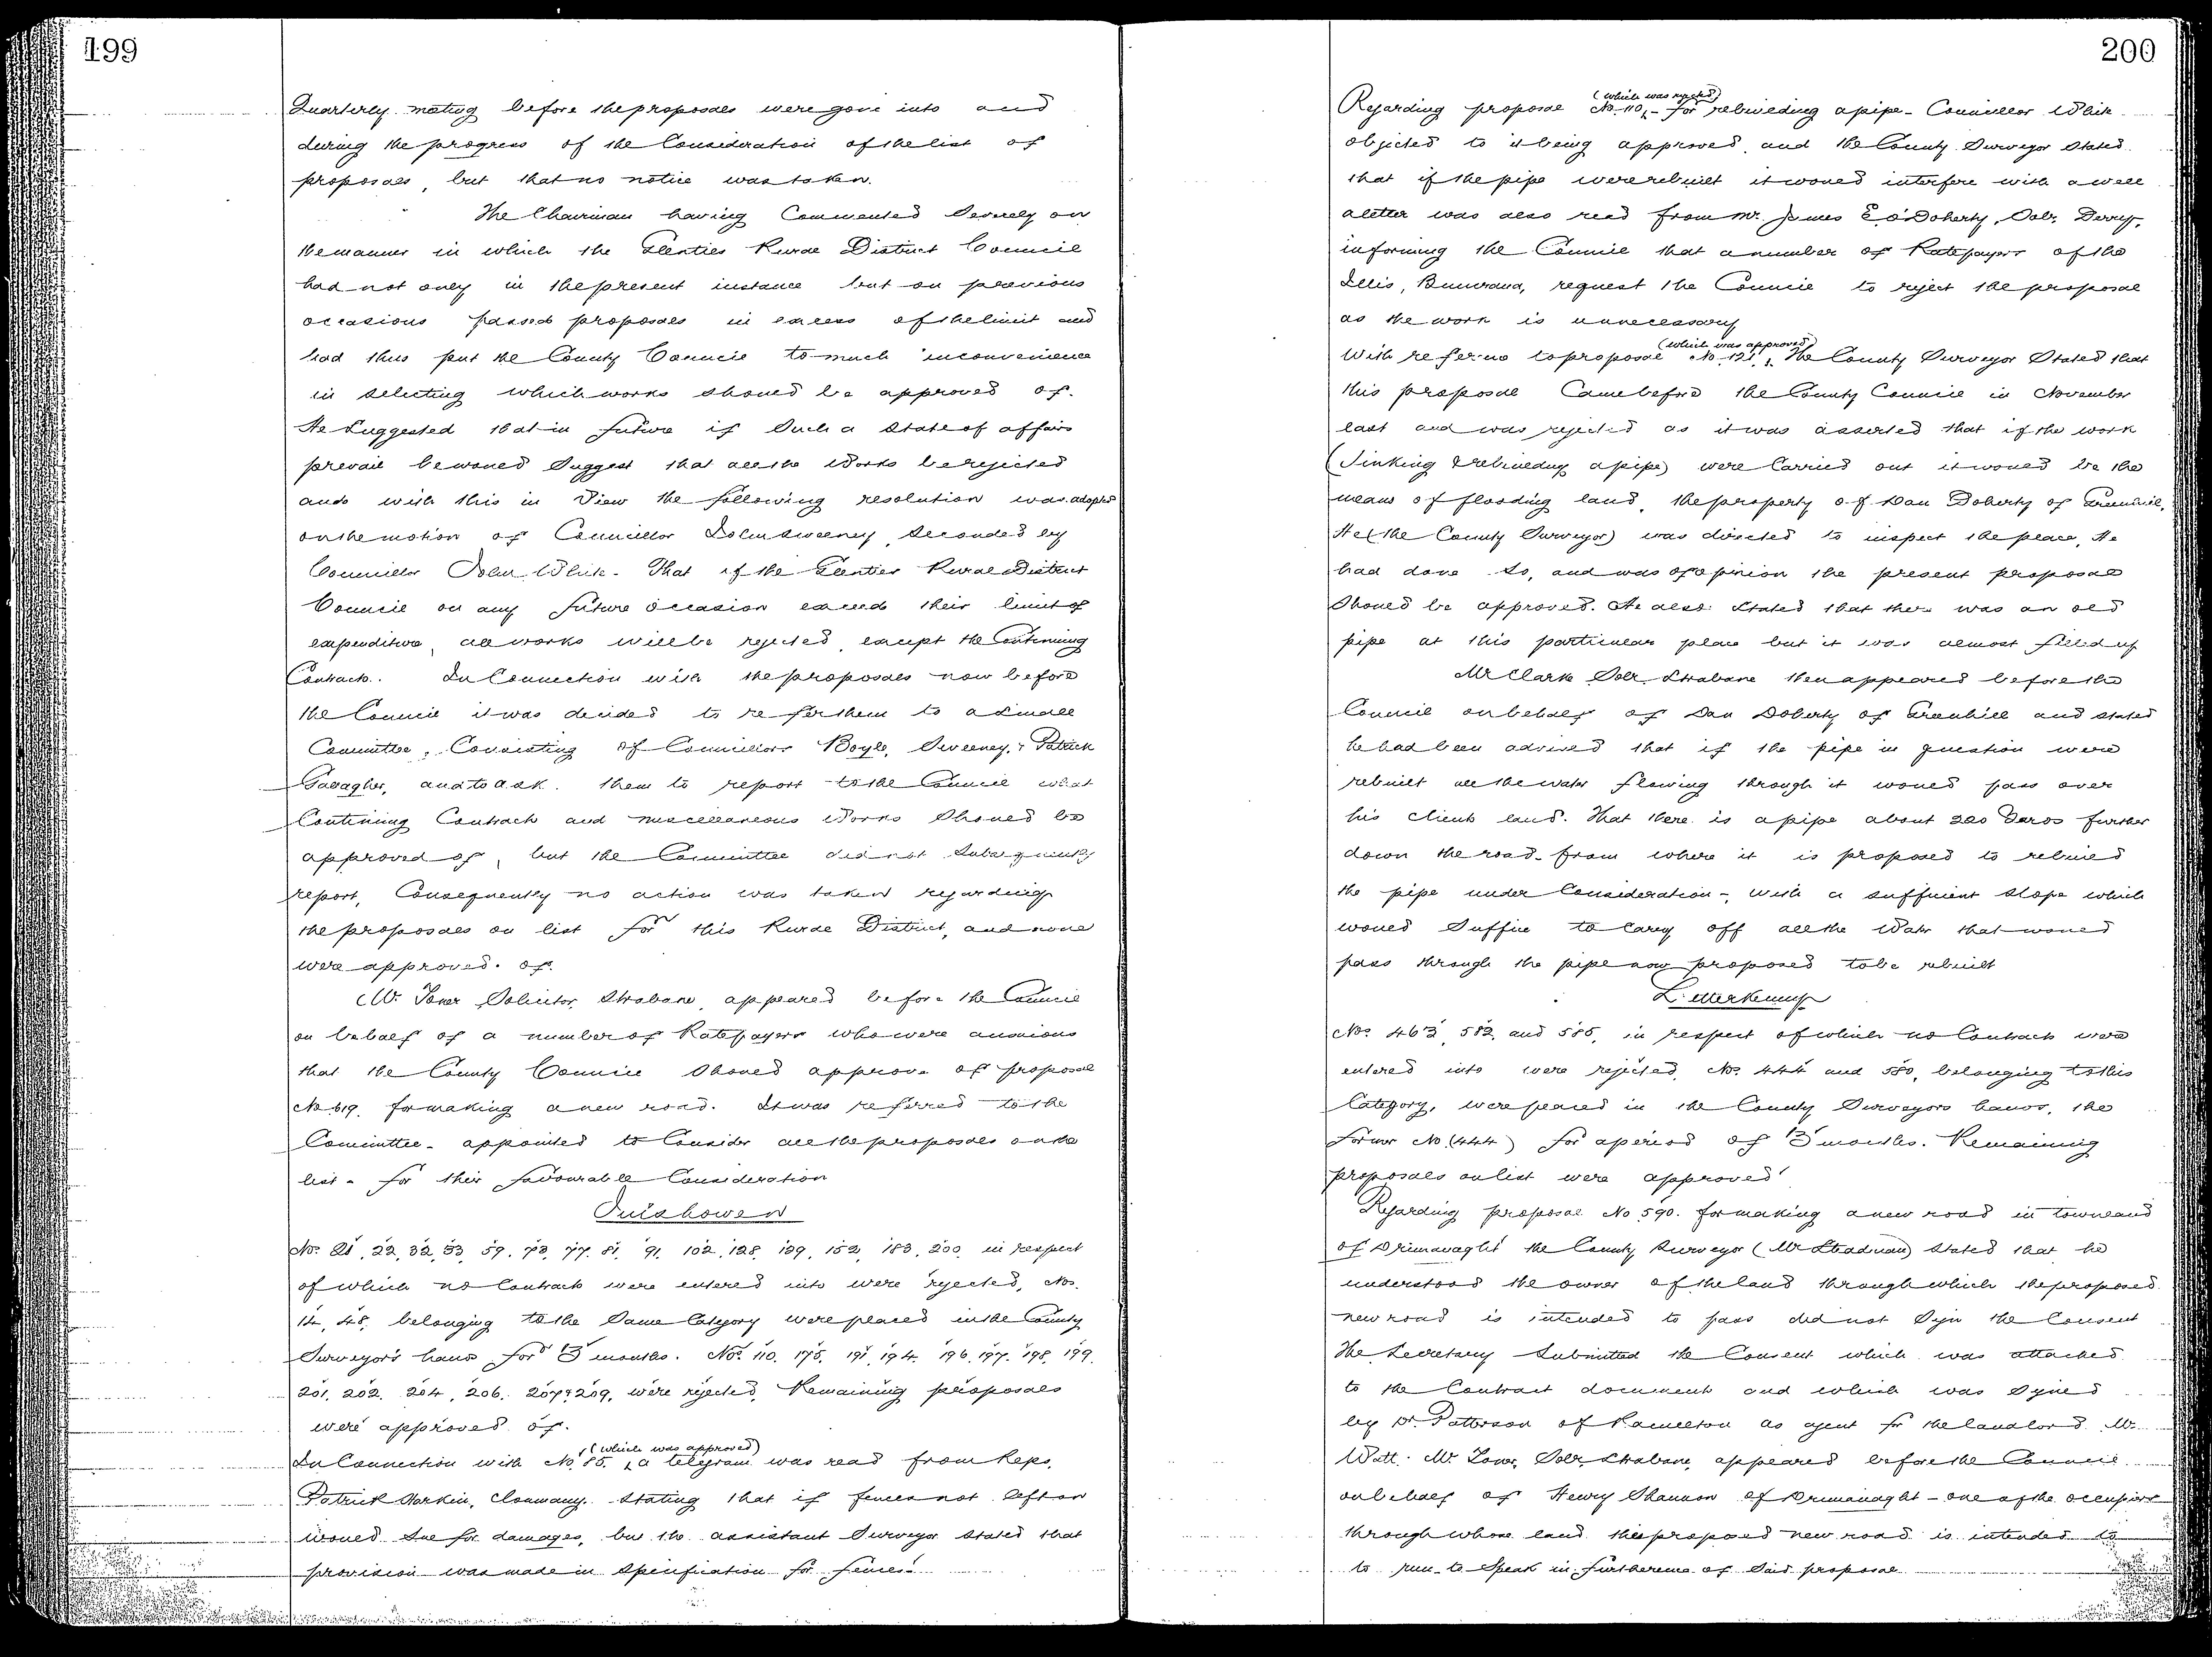 199
Quarterly meeting before the proposals were gone into and
during the progress of the Consideration of the list of
proposals, but that no notice was taken.
The Chairman having Commented Severely on
the manner in which the Glenties Rural District Council
had not only in the present instance but on previous
occasions passed proposals in excess of the limit and
had thus put the County Council to much inconvenience
in selecting which works should be approved of.
He Suggested that in future if Such a State of affairs
prevail he would Suggest that all the Works be rejected
and with this in View the following resolution was adopted
on the motion of Councillor John Sweeney, Seconded by
Councillor John White. That if the Glenties Rural District
Council on any future occasion exceed their limit of
expenditure, all works will be rejected, except the Continuing
Contracts. In Connection with the proposals now before
the Council it was decided to refer them to a Small
Committee, Consisting of Councillors Boyle, Sweeney, & Patrick
Gavagher, and to ask them to report to the Council what
Continuing Contracts and miscellaneous Works Should be
approved of, but the Committee did not Subsequently
report, Consequently no action was taken regarding
the proposals on list for this Rural District, and none
were approved of.
Mr. Toner Solicitor, Strabane, appeared before the Council
on behalf of a number of Ratepayers who were anxious
that the County Council Should approve of proposal
No 619. for making a new road. It was referred to the
Committee appointed to Consider all the proposals on the
list - for their favourable Consideration
Inishowen
Nos. 21, 22, 32, 33, 59, 73, 77, 81, 91, 102, 128, 129, 152, 183, 200, in respect
of which no Contracts were entered into were rejected, Nos.
14, 48, belonging to the Same Category were placed in the County
Surveyor's hands for 3 months. Nos. 110, 175, 191, 194, 196, 197, 198, 199,
201, 202, 204, 206, 207 & 209, were rejected, Remaining proposals
were approved of.
In Connection with No. 85, (which was approved) a telegram was read from Reps.
Patrick Harkin, Clonmany, Stating that if fences not left on
would Sue for damages, but the assistant Surveyor Stated that
provision was made in Specification for fences.
200
Regarding proposal No. 110, (which was rejected) - for rebuilding a pipe - Councillor White
objected to it being approved, and the County Surveyor Stated
that if the pipe were rebuilt it would interfere with a well
a letter was also read from Mr. James E. O'Doherty, Solr. Derry,
informing the Council that a number of Ratepayers of the
Illis, Buncrana, request the Council to reject the proposal
as the work is unnecessary
With reference to proposal No. 121, (which was approved) The County Surveyor Stated that
this proposal Came before the County Council in November
last and was rejected as it was asserted that if the work
(Sinking & rebuilding a pipe) were Carried out it would be the
means of flooding land, the property of Dan Doherty of Greenhill,
He (the County Surveyor) was directed to inspect the place, He
had done So, and was of opinion the present proposal
Should be approved. He also Stated that there was an old
pipe at this particular place but it was almost filled up
Mr Clark Solr. Strabane then appeared before the
Council on behalf of Dan Doherty of Greenhill and stated
he had been advised that if the pipe in question were
rebuilt all the water flowing through it would pass over
his clients land. That there is a pipe about 220 yards further
down the road - from where it is proposed to rebuild
the pipe under Consideration -, with a sufficient Slope which
would Suffice to Carry off all the Water that would
pass through the pipe now proposed to be rebuilt
Letterkenny
Nos. 463, 582, and 585, in respect of which no Contracts were
entered into were rejected, Nos. 444 and 580, belonging to this
Category, were placed in the County Surveyors hands, the
former No (444) for a period of 3 months. Remaining
proposals on list were approved
Regarding proposal No 590. for making a new road in townland
of Drimavaght the County Surveyor (Mr Steadman) Stated that he
understood the owner of the land through which the proposed
new road is intended to pass did not Sign the Consent
The Secretary Submitted the Consent which was attached
to the Contract documents and which was Signed
by Dr. Patterson of Ramelton as agent for the landlord Mr.
Watt. Mr Toner, Solr. Strabane, appeared before the Council
on behalf of Henry Shannon of Drimanaght - one of the occupiers
through whose land the proposed new road is intended to
to run - to Speak in furtherance of Said proposal